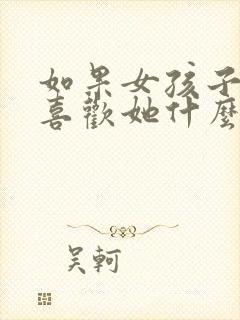 如果女孩子
喜歡她什麼
吴軻